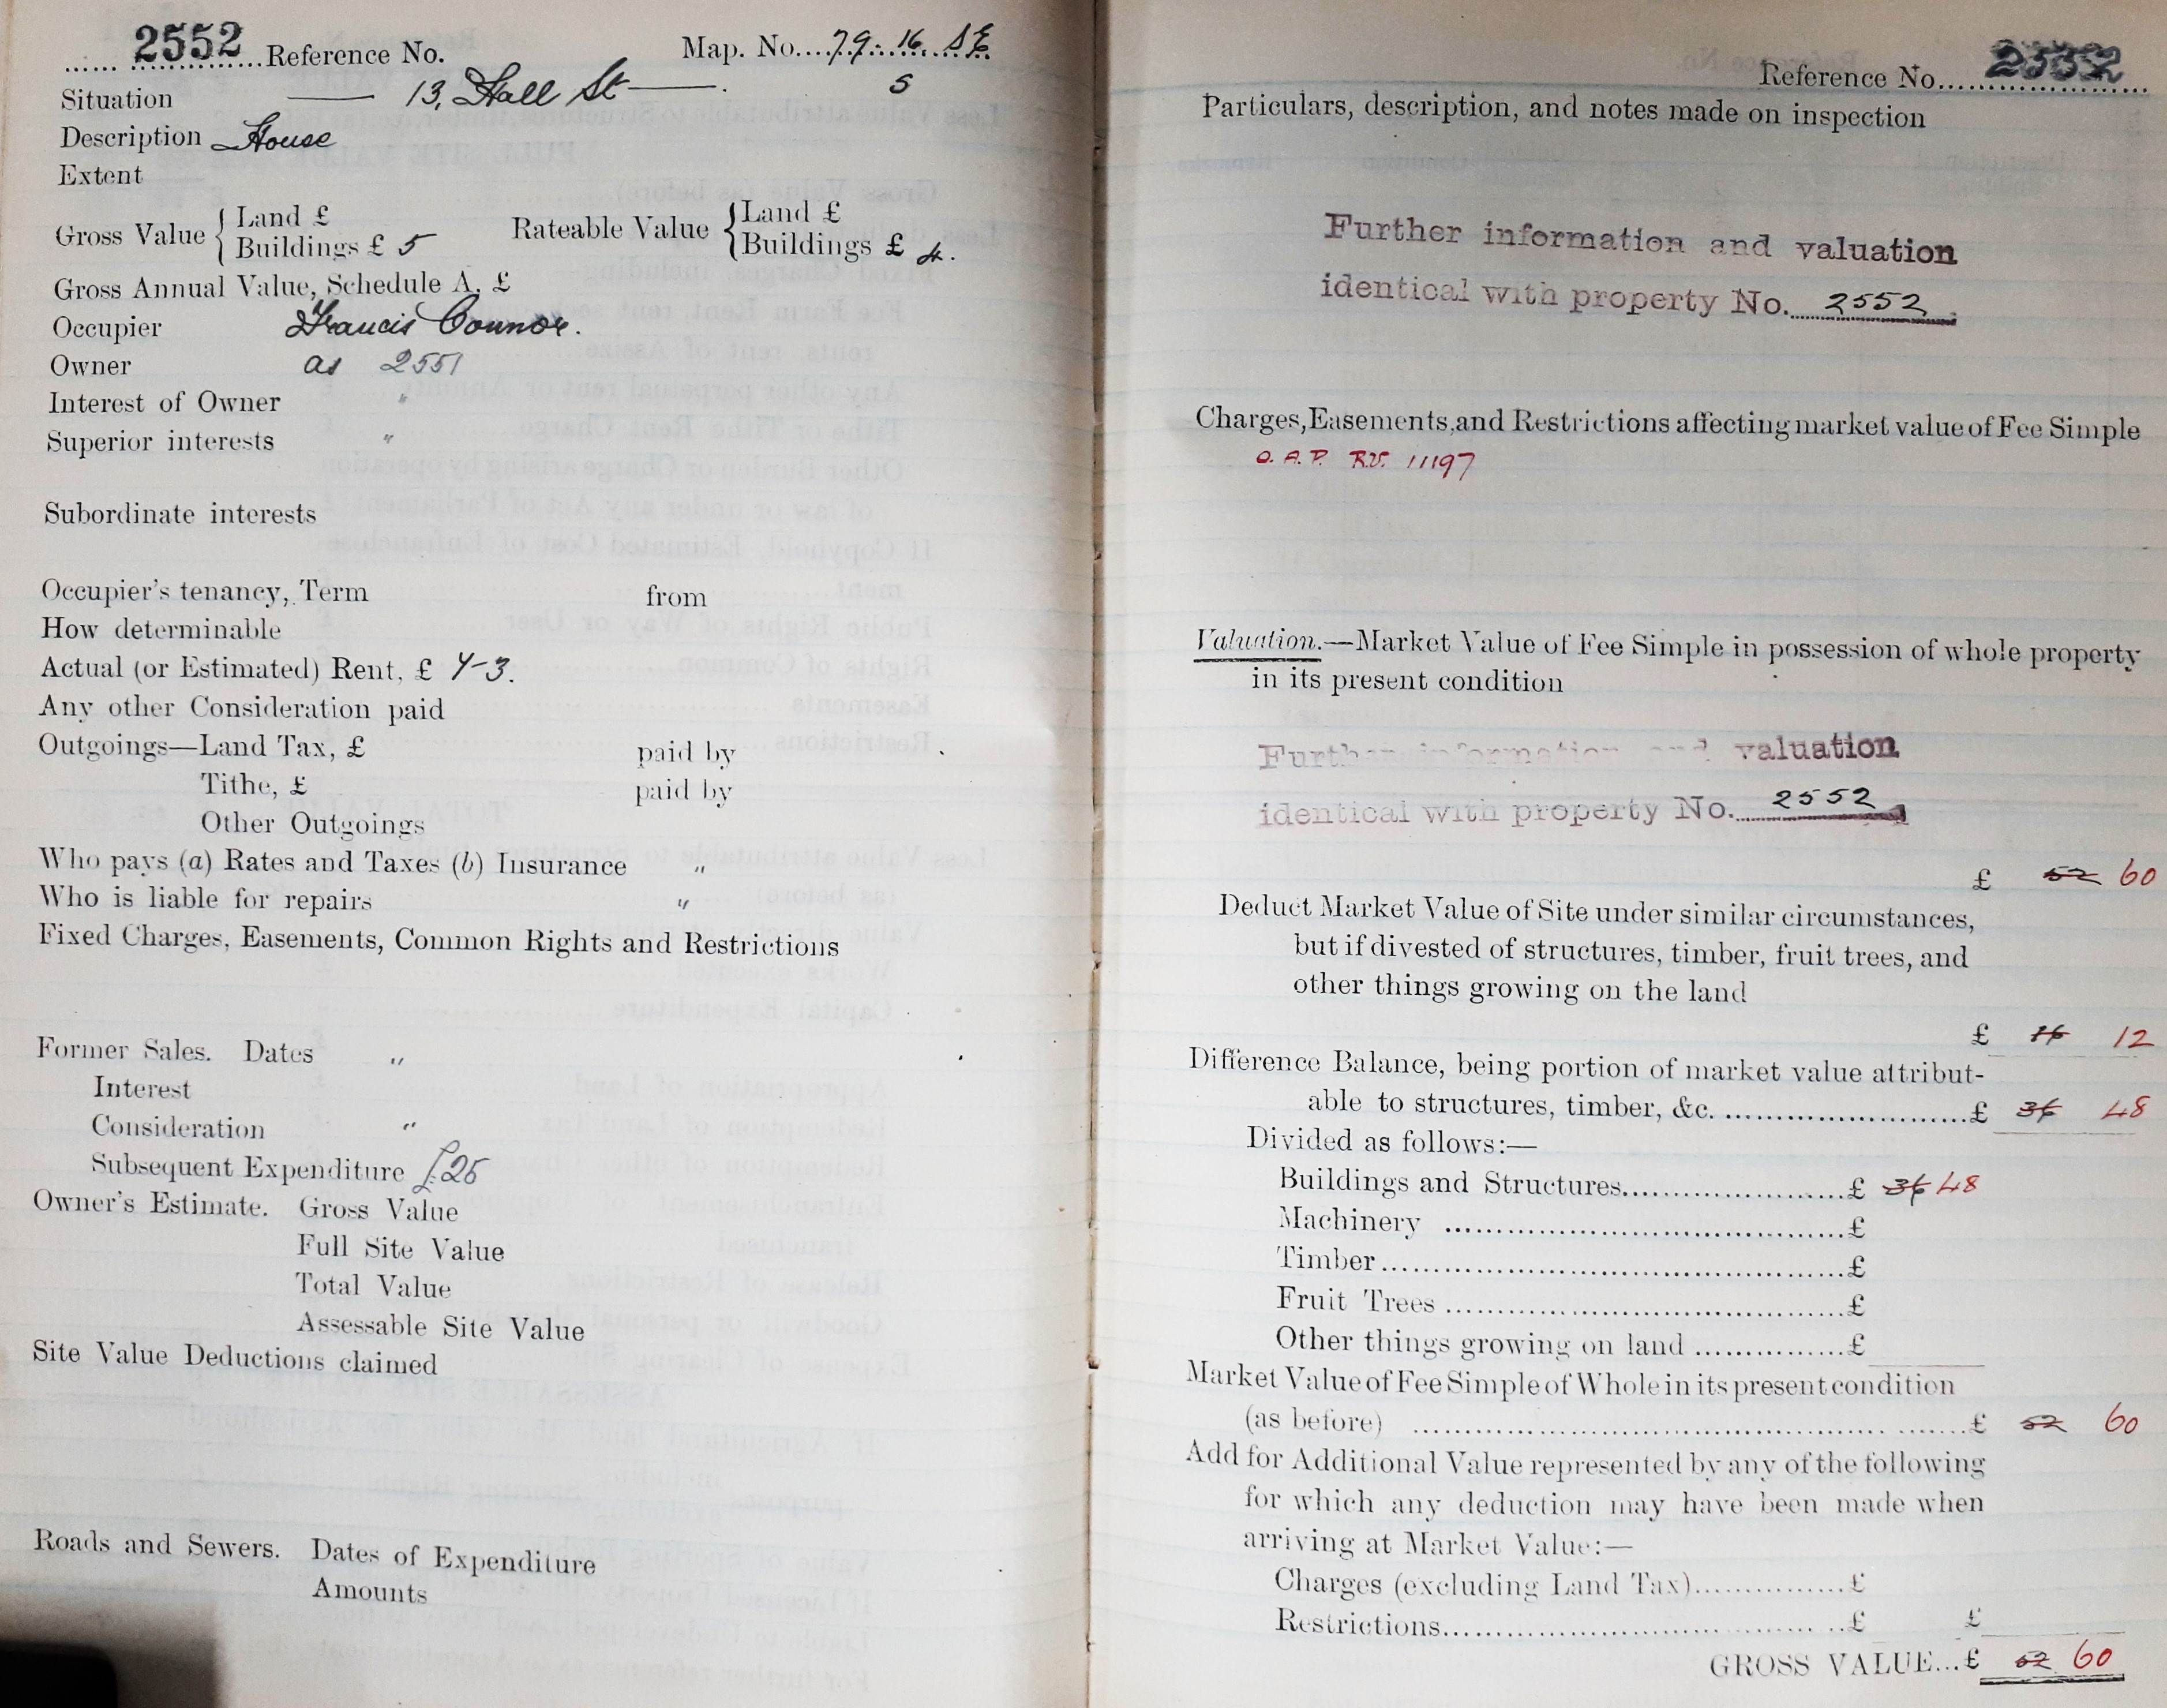 2552 Reference No. Map. No. 79-16 S E
Situation 13, Hall St S
Description House
Extent
Gross Value { Land £ Rateable Value { Land £
Buildings £ 5 Buildings £ 4.
Gross Annual Value, Schedule A, £
Occupier Francis Connor.
Owner as 2551
Interest of Owner "
Superior interests "
Subordinate interests
Occupier's tenancy, Term from
How determinable
Actual (or Estimated) Rent, £ 4-3.
Any other Consideration paid
Outgoings—Land Tax, £ paid by
Tithe, £ paid by
Other Outgoings
Who pays (a) Rates and Taxes (b) Insurance "
Who is liable for repairs "
Fixed Charges, Easements, Common Rights and Restrictions
Former Sales. Dates "
Interest
Consideration "
Subsequent Expenditure £25
Owner's Estimate. Gross Value
Full Site Value
Total Value
Assessable Site Value
Site Value Deductions claimed
Roads and Sewers. Dates of Expenditure
Amounts
Reference No. 2552
Particulars, description, and notes made on inspection
Further information and valuation
identical with property No. 2552
Charges, Easements, and Restrictions affecting market value of Fee Simple
O.A.P. R.V. 11197
Valuation.—Market Value of Fee Simple in possession of whole property
in its present condition
Further information and valuation
identical with property No. 2552
£ 52 60
Deduct Market Value of Site under similar circumstances,
but if divested of structures, timber, fruit trees, and
other things growing on the land
£ 16 12
Difference Balance, being portion of market value attribut-
able to structures, timber, &c. £ 36 48
Divided as follows:—
Buildings and Structures £ 36 48
Machinery £
Timber £
Fruit Trees £
Other things growing on land £
Market Value of Fee Simple of Whole in its present condition
(as before) £ 52 60
Add for Additional Value represented by any of the following
for which any deduction may have been made when
arriving at Market Value:—
Charges (excluding Land Tax) £
Restrictions £ £
GROSS VALUE... £ 52 60